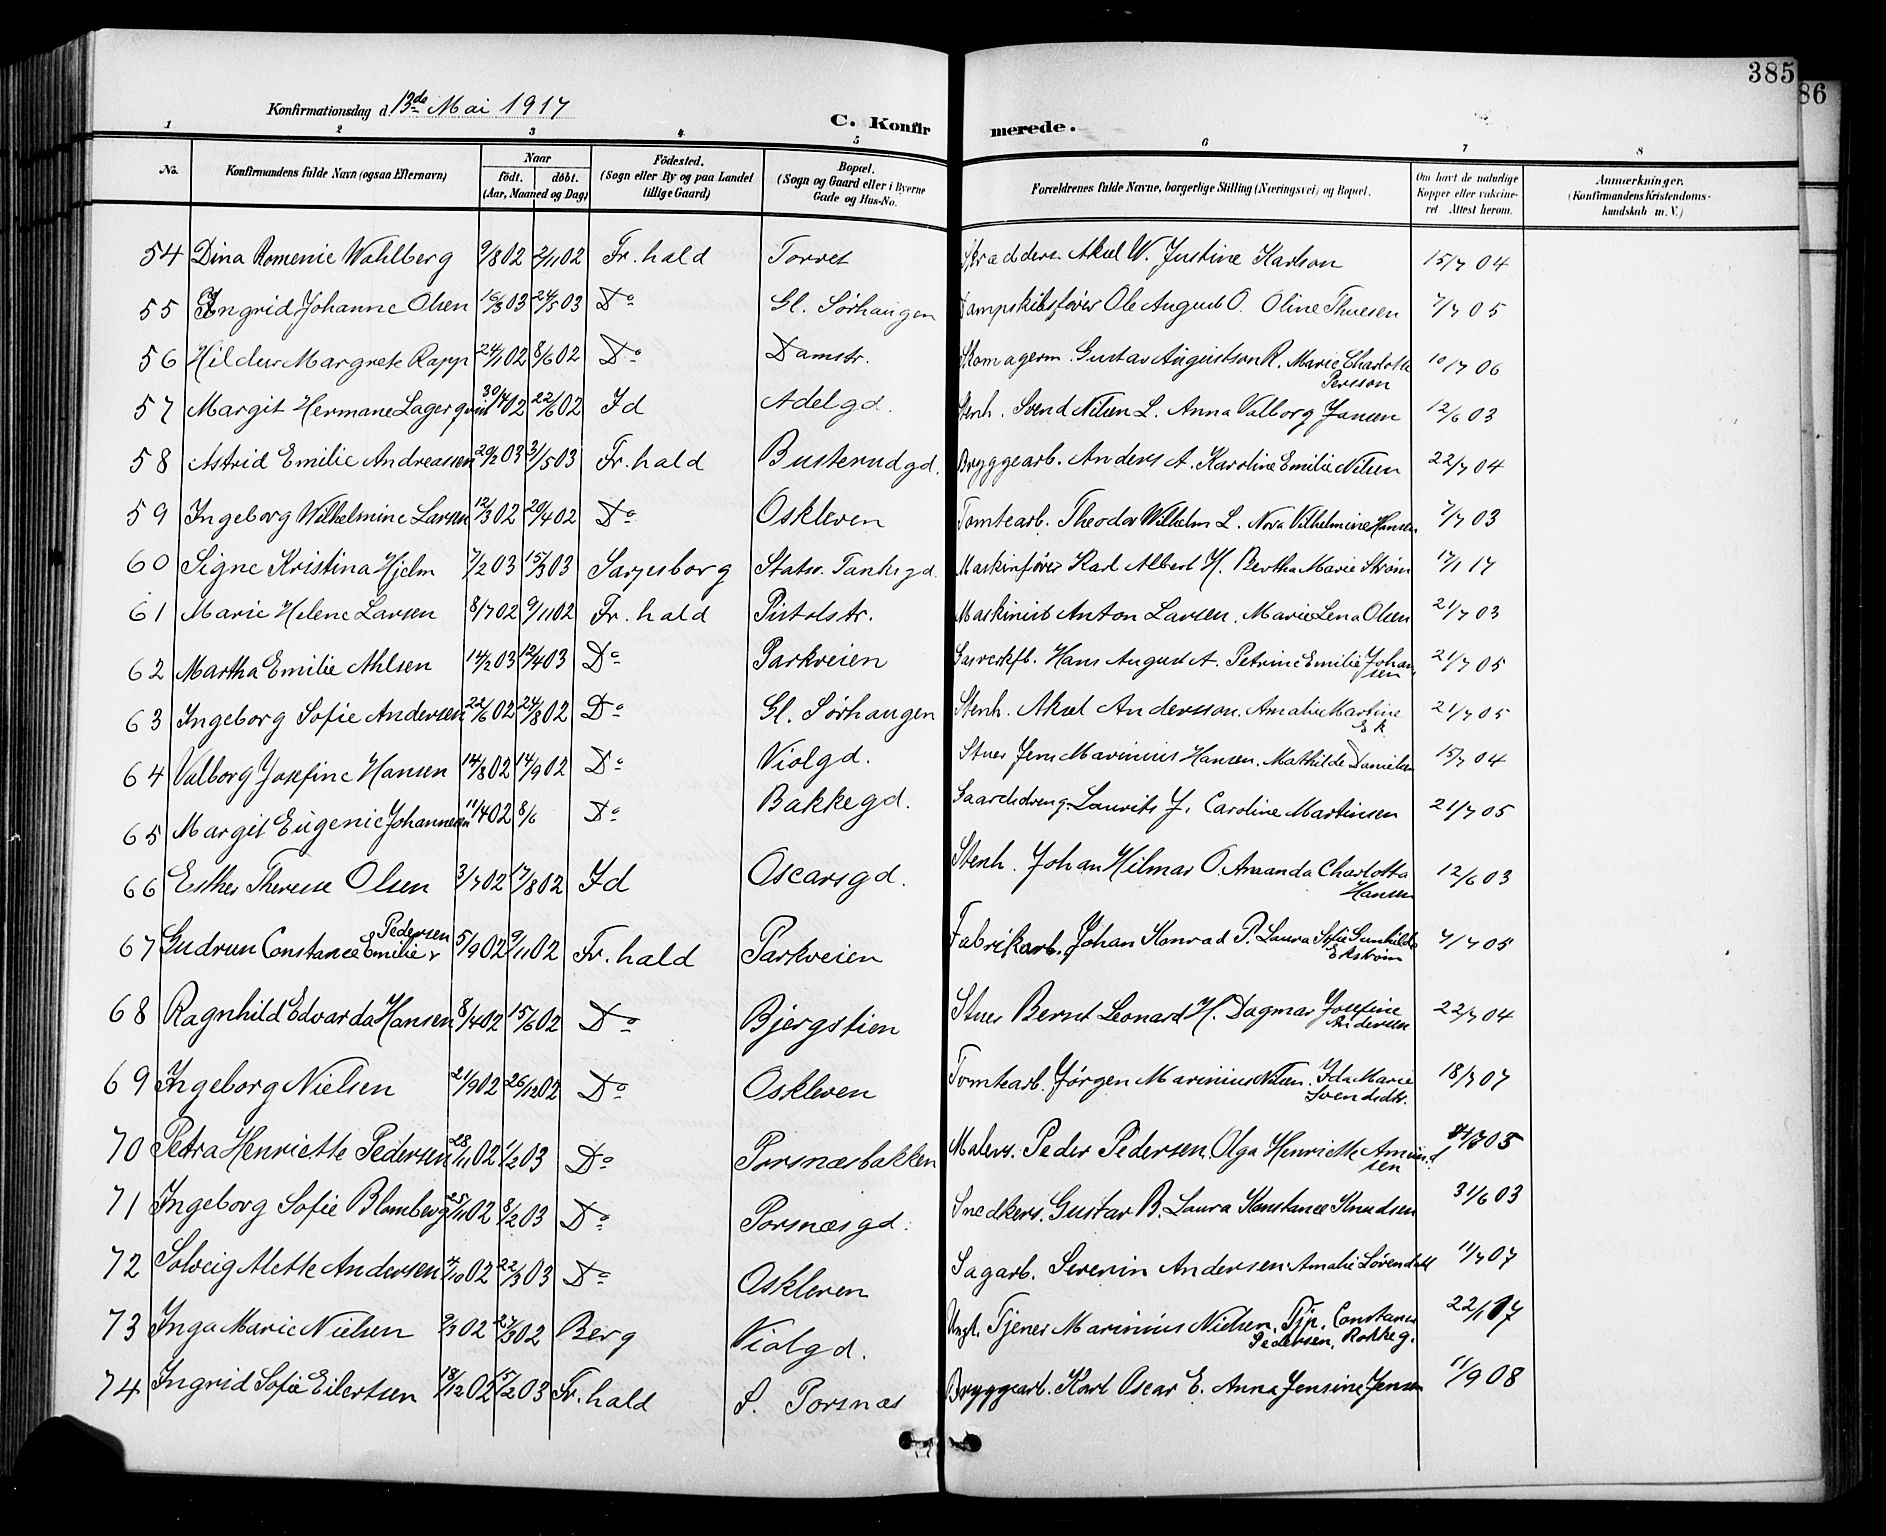 385
86
Konfirmationsdag d. 13de Mai 1917
C. Konfirmerede.
1 2 3 4 5 6 7 8
No. Konfirmandens fulde Navn (ogsaa Efternavn) Naar født. døbt. (Aar, Maaned og Dag) Fødested. (Sogn eller By og paa Landet tillige Gaard) Bopæl. (Sogn og Gaard eller i Byerne Gade og Hus-No. Forældrenes fulde Navne, borgerlige Stilling (Næringsvei) og Bopæl. Om havt de naturlige Kopper eller vaccineret Attest herom. Anmærkninger. (Konfirmandens Kristendomskundskab m. V.)
54 Dina Romenie Wahlberg 9/8 02 2/11 02 Fr.hald Torvet Skrædders. Aksel W. Justine Karlson 15/7 04
55 Ingrid Johanne Olsen 16/3 03 24/5 03 Do Gl. Sørhaugen Dampskibsfører Ole August O. Oline Thuesen 7/7 05
56 Hildur Margrete Rapp 24/1 02 8/6 02 Do Damstr. Skomagerm. Gustav Augustson R. Marie Charlotte Persson 10/7 06
57 Margit Hermane Lagerqvist 30/4 02 22/6 02 Id Adelgd. Stenh. Svend Nilsen L. Anna Valborg Jansen 12/6 03
58 Astrid Emilie Andreassen 20/2 03 3/5 03 Fr.hald Busterudgd. Bryggearb. Anders A. Karoline Emilie Nilsen 22/7 04
59 Ingeborg Wilhelmine Larsen 12/3 02 20/4 02 Do Oskleven Tomtearb. Theodor Wilhelm L. Nora Vilhelmine Hansen 7/7 03
60 Signe Kristina Hjelm 7/2 03 15/3 03 Sarpsborg Statsr. Tanksgd. Maskinfører Karl Albert H. Bertha Marie Strøm 17/1 17
61 Marie Helene Larsen 8/7 02 9/11 02 Fr.hald Pistolstr. Maskinist Anton Larsen. Marie Lena Olsen 21/7 03
62 Martha Emilie Ahlsen 14/2 03 12/4 03 Do Parkveien Gasverkfb. Hans August A. Petrine Emilie Johansen 21/7 05
63 Ingeborg Sofie Andersen 22/6 02 24/8 02 Do Gl. Sørhaugen Stenh. Aksel Andersson. Amalie Martine Ek 21/7 05
64 Valborg Josefine Hansen 14/8 02 14/9 02 Do Violgd. Stuer Jens Marinius Hansen. Mathilde Danielsen 15/7 04
65 Margit Eugenie Johannesen 11/4 02 8/6 Do Bakkegd. Gaardsdreng. Laurits J. Caroline Martinsen 21/7 05
66 Esther Therese Olsen 3/7 02 17/8 02 Id Oscarsgd. Stenh. Johan Hilmar O. Amanda Charlotta Hansen 12/6 03
67 Gudrun Constance Emilie Pedersen 5/9 02 9/11 02 Fr.hald Parkveien Fabrikarb. Johan Konrad P. Laura Sofie Gunhilda Ekstrøm 7/7 05
68 Ragnhild Edvarda Hansen 8/4 02 15/6 02 Do Bjergstien Stuer Bernt Leonard H. Dagmar Josefine Andersen 22/7 04
69 Ingeborg Nielsen 21/9 02 26/12 02 Do Oskleven Tomtearb. Jørgen Marinius Nilsen. Ida Marie Svendsdtr. 18/7 07
70 Petra Henriette Pedersen 28/11 02 1/2 03 Do Porsnæsbakken Malers. Peder Pedersen. Olga Henriette Amundsen 05
71 Ingeborg Sofie Blomberg 25/11 02 8/2 03 Do Porsnæsgd. Snedkers. Gustav B. Laura Konstance Knudsen 31/6 03
72 Solveig Alette Andersen 02 22/3 03 Do Oskleven Sagarb. Severin Andersen Amalie Løvendall 11/7 07
73 Inga Marie Nielsen 9/3 02 27/3 02 Berg Violgd. Ungk. Tjener Marinius Nielsen. Tjp. Constance Pedersen, Rokkeg. 22/1 17
74 Ingrid Sofie Eilertsen 18/12 02 03 Fr.hald S. Porsnæs Bryggearb. Karl Oscar E. Anna Jensine Jensen 11/9 08